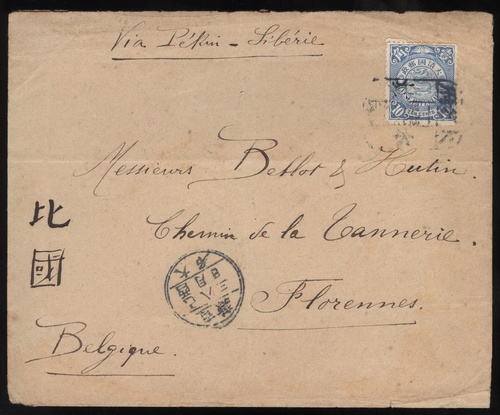 Via Pékin - Sibérie
大清國郵政
10
Messieurs Bellot & Hutin.
Chemin de la Tannerie.
Florennes.
比
國
Belgique.